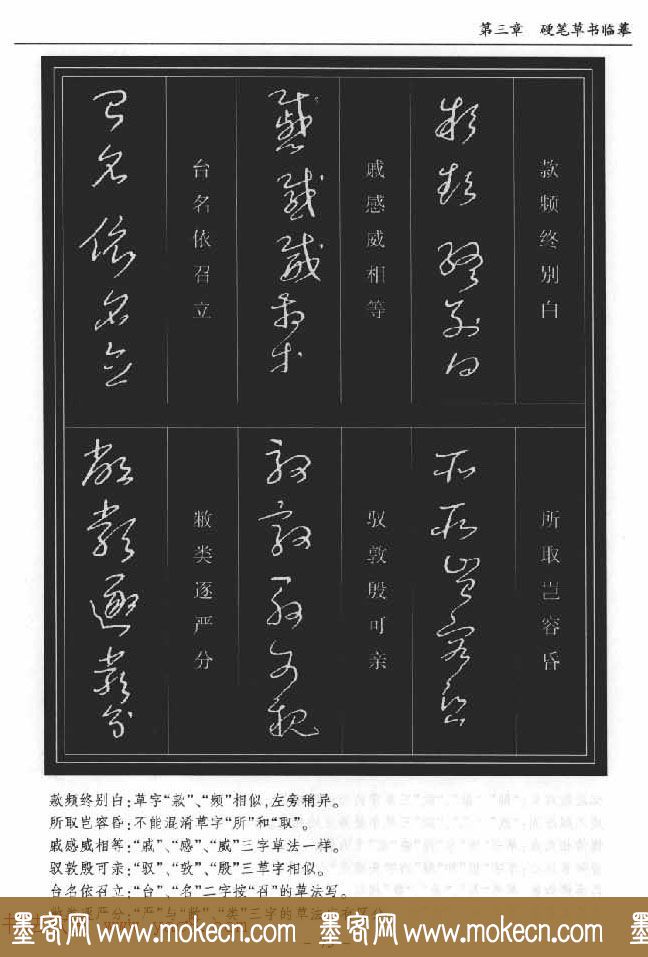 第三章 硬笔草书临摹
款频终别白
戚感威相等
台名依召立
所取岂容昏
驭敦殷可亲
敝类逐严分
款频终别白:草字“款”、“频”相似,左旁稍异。
所取岂容昏:不能混淆草字“所”和“取”。
戚感威相等:“戚”、“感”、“威”三字草法一样。
驭敦殷可亲:“驭”、“敦”、“殷”三草字相似。
台名依召立:“台”、“名”二字按“召”的草法写。
墨客网 www.mokecn.com 墨客网 www.mokecn.com